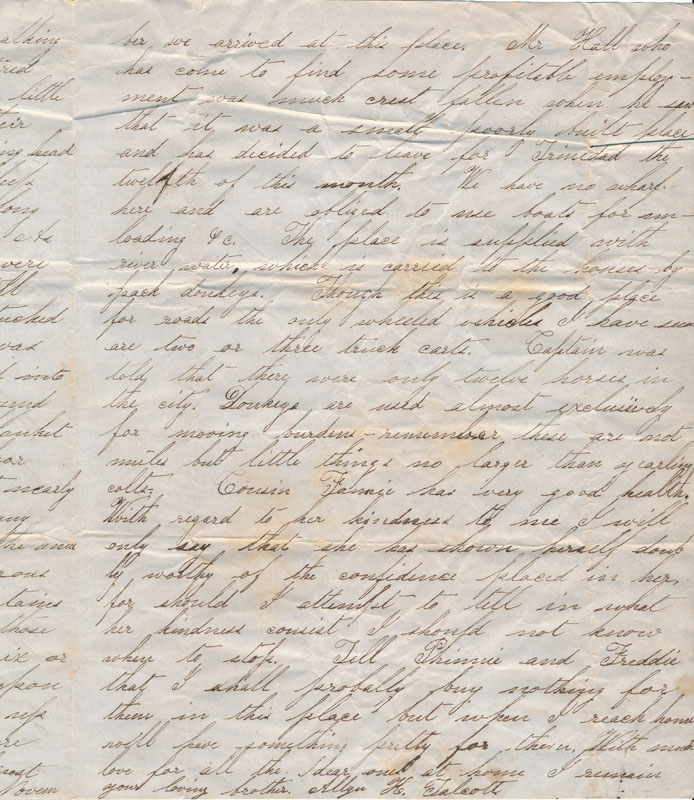 alking
ired
little
eir
ing head
long
were
tucked
was
d into
und
lanket
or
t nearly
any
the
rous
tains
those
ix or
upon
up
re
most
Novem
ber, we arrived at this place. Mr Hall who
has come to find some profitable employ-
ment was much crest fallen when he saw
that it was a small poorly built place
and has decided to leave for Trinidad the
twelfth of this month. We have no wharf
here and are obliged to use boats for un-
loading &c. The place is supplied with
river water, which is carried to the houses by
pack donkeys. Though this is a good place
for roads the only wheeled vehicles I have seen
are two or three truck carts. Captain was
told that there were only twelve horses in
the city. Donkeys are used almost exclusively
for moving burdens - remember these are not
mules but little things no larger than yearling
colts. Cousin Fannie has very good health.
With regard to her kindness to me I will
only say that she has shown herself doub
ly worthy of the confidence placed in her,
for should I attempt to tell in what
her kindness consist I should not know
when to stop. Tell Phinnie and Freddie
that I shall probally buy nothing for
them in this place but when I reach home
will have something pretty for them. With much
love for all the dear ones at home I remain
your loving brother. Allyn H. Talcott